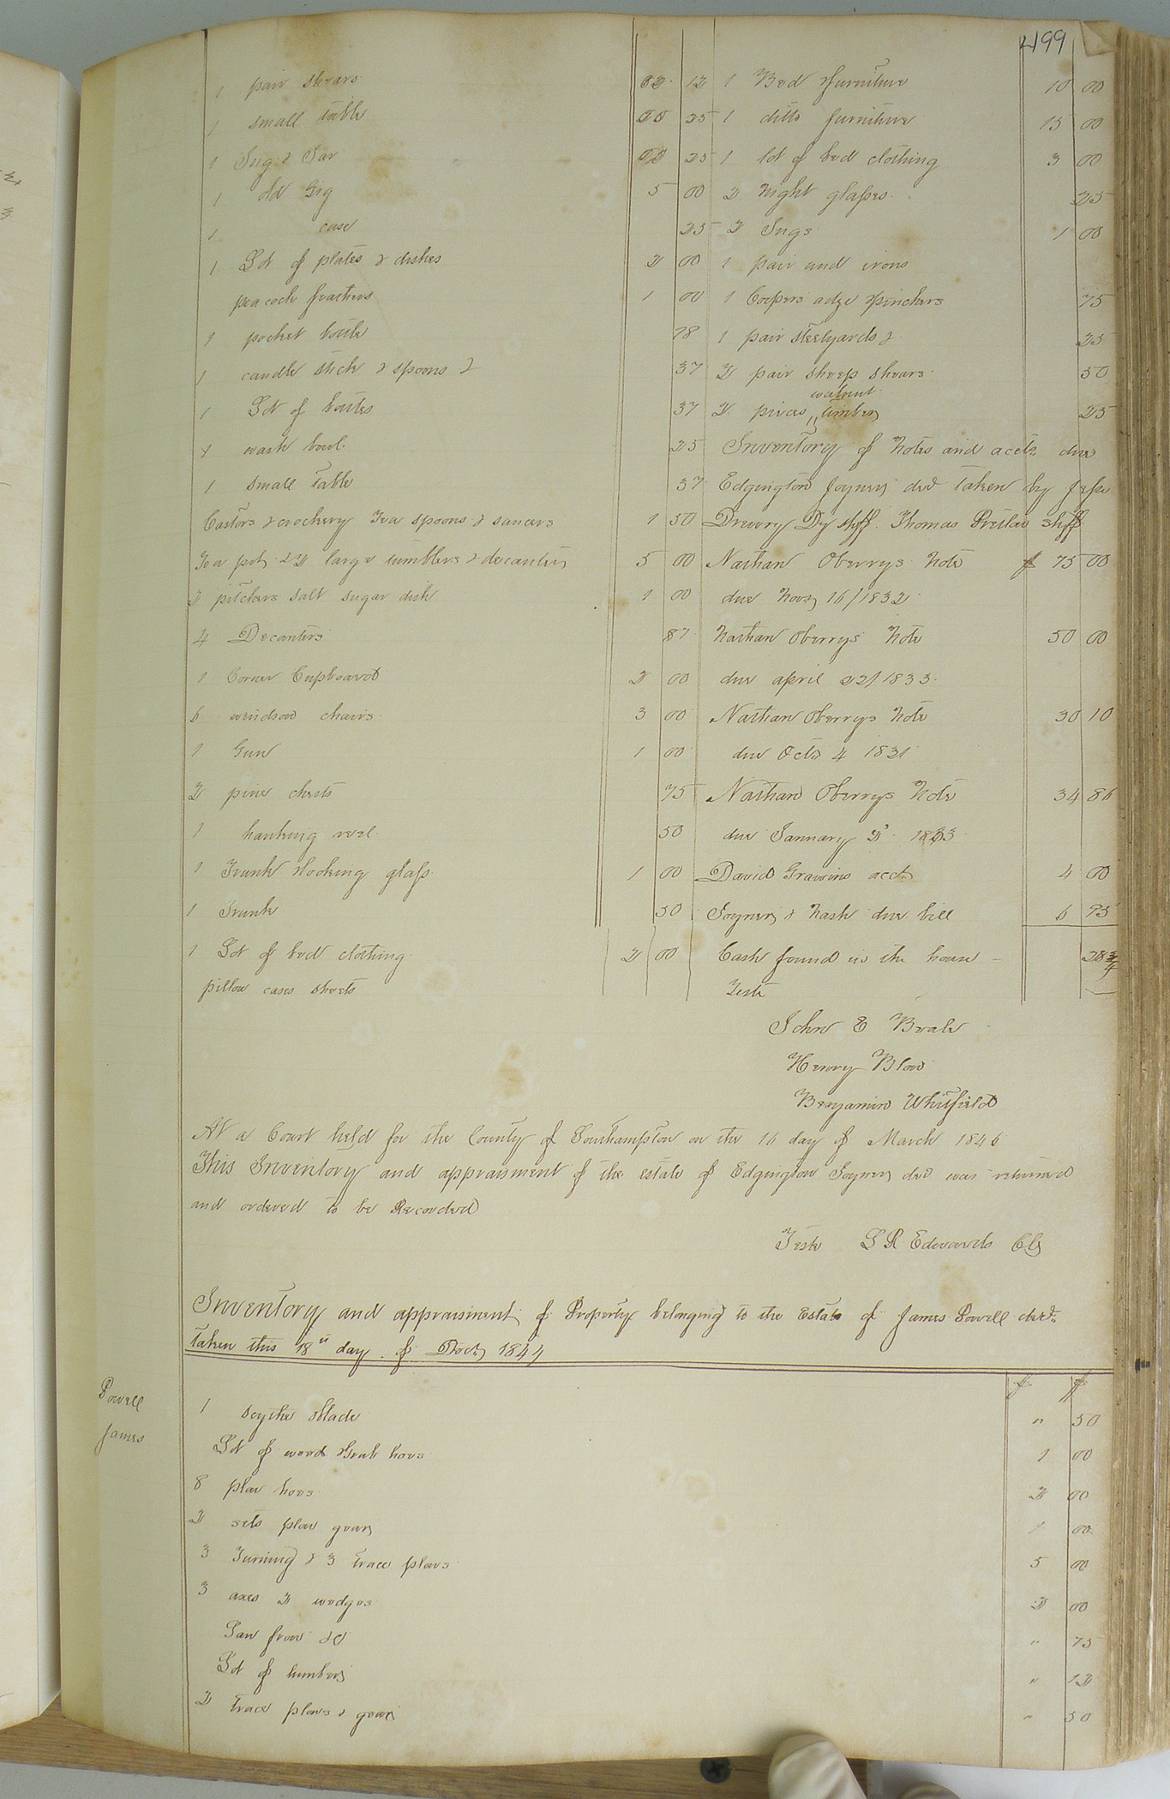 499
1 pair shears 00 12
1 small table 00 25
1 Jug & Jar 00 25
1 old Gig 5 00
1 case 25
1 Lot of plates & dishes 2 00
peacock feathers 1 00
1 pocket bottle 78
1 candle stick & spoons & 37
1 Lot of bottles 37
1 wash bowl 25
1 small Table 37
Castors & crockery Tea spoons & saucers 1 50
Tea pot, & 2 large tumblers & decanters 5 00
2 pitchers salt sugar dish 1 00
4 Decanters 87
1 Corner Cupboard 2 00
6 windsor chairs 3 00
1 Gun 1 00
2 pine chests 75
1 hanking reel 50
1 Trunk & looking glass 1 00
1 Trunk 50
1 Lot of bed clothing 2 00
pillow cases sheets
1 Bed & furniture 10 00
1 ditto furniture 15 00
1 lot of bed clothing 3 00
2 night glasses 25
2 Jugs 1 00
1 pair and irons
1 Coopers adze & pinchers 75
1 pair steelyards & 25
2 pair sheep shears 50
walnut
2 pieces " timber 25
Inventory of Notes and accts due
Edgington Joyner decd taken by Jesse
Drewry Dy shff. Thomas Pretlow shff
Nathan Oberrys Note $ 75 00
due Novr 16/1832
Nathan Oberrys Note 50 00
due april 22/1833
Nathan Oberrys Note 30 10
due Octr 4 1831
Nathan Oberrys Note 34 86
due January 2d 1833
David acct 4 00
Joyner & Nash due bill 6 95
Cash found in the house - 28 3/4
Teste
John E Beale
Henry Blow
Benjamin Whitfield
At a Court held for the County of Southampton on the 16 day of March 1846
This Inventory and appraisment of the estate of Edgington Joyner decd was returned
and ordered to be Recorded
Teste L R Edwards Clk
Inventory and appraisment of Property belonging to the Estate of James Powell decd
taken this 18th day of Decr 1844
Powell
James
$ $
1 Scythe Blade " 50
Lot of weed & Grub hoes 1 00
8 plow hoes 2 00
2 sets plow gear 1 00
3 Turning & 3 trace plows 5 00
3 axes 2 wedges 2 00
Saw frow &C " 75
Lot of lumber " 12
2 trace plows & gear " 50